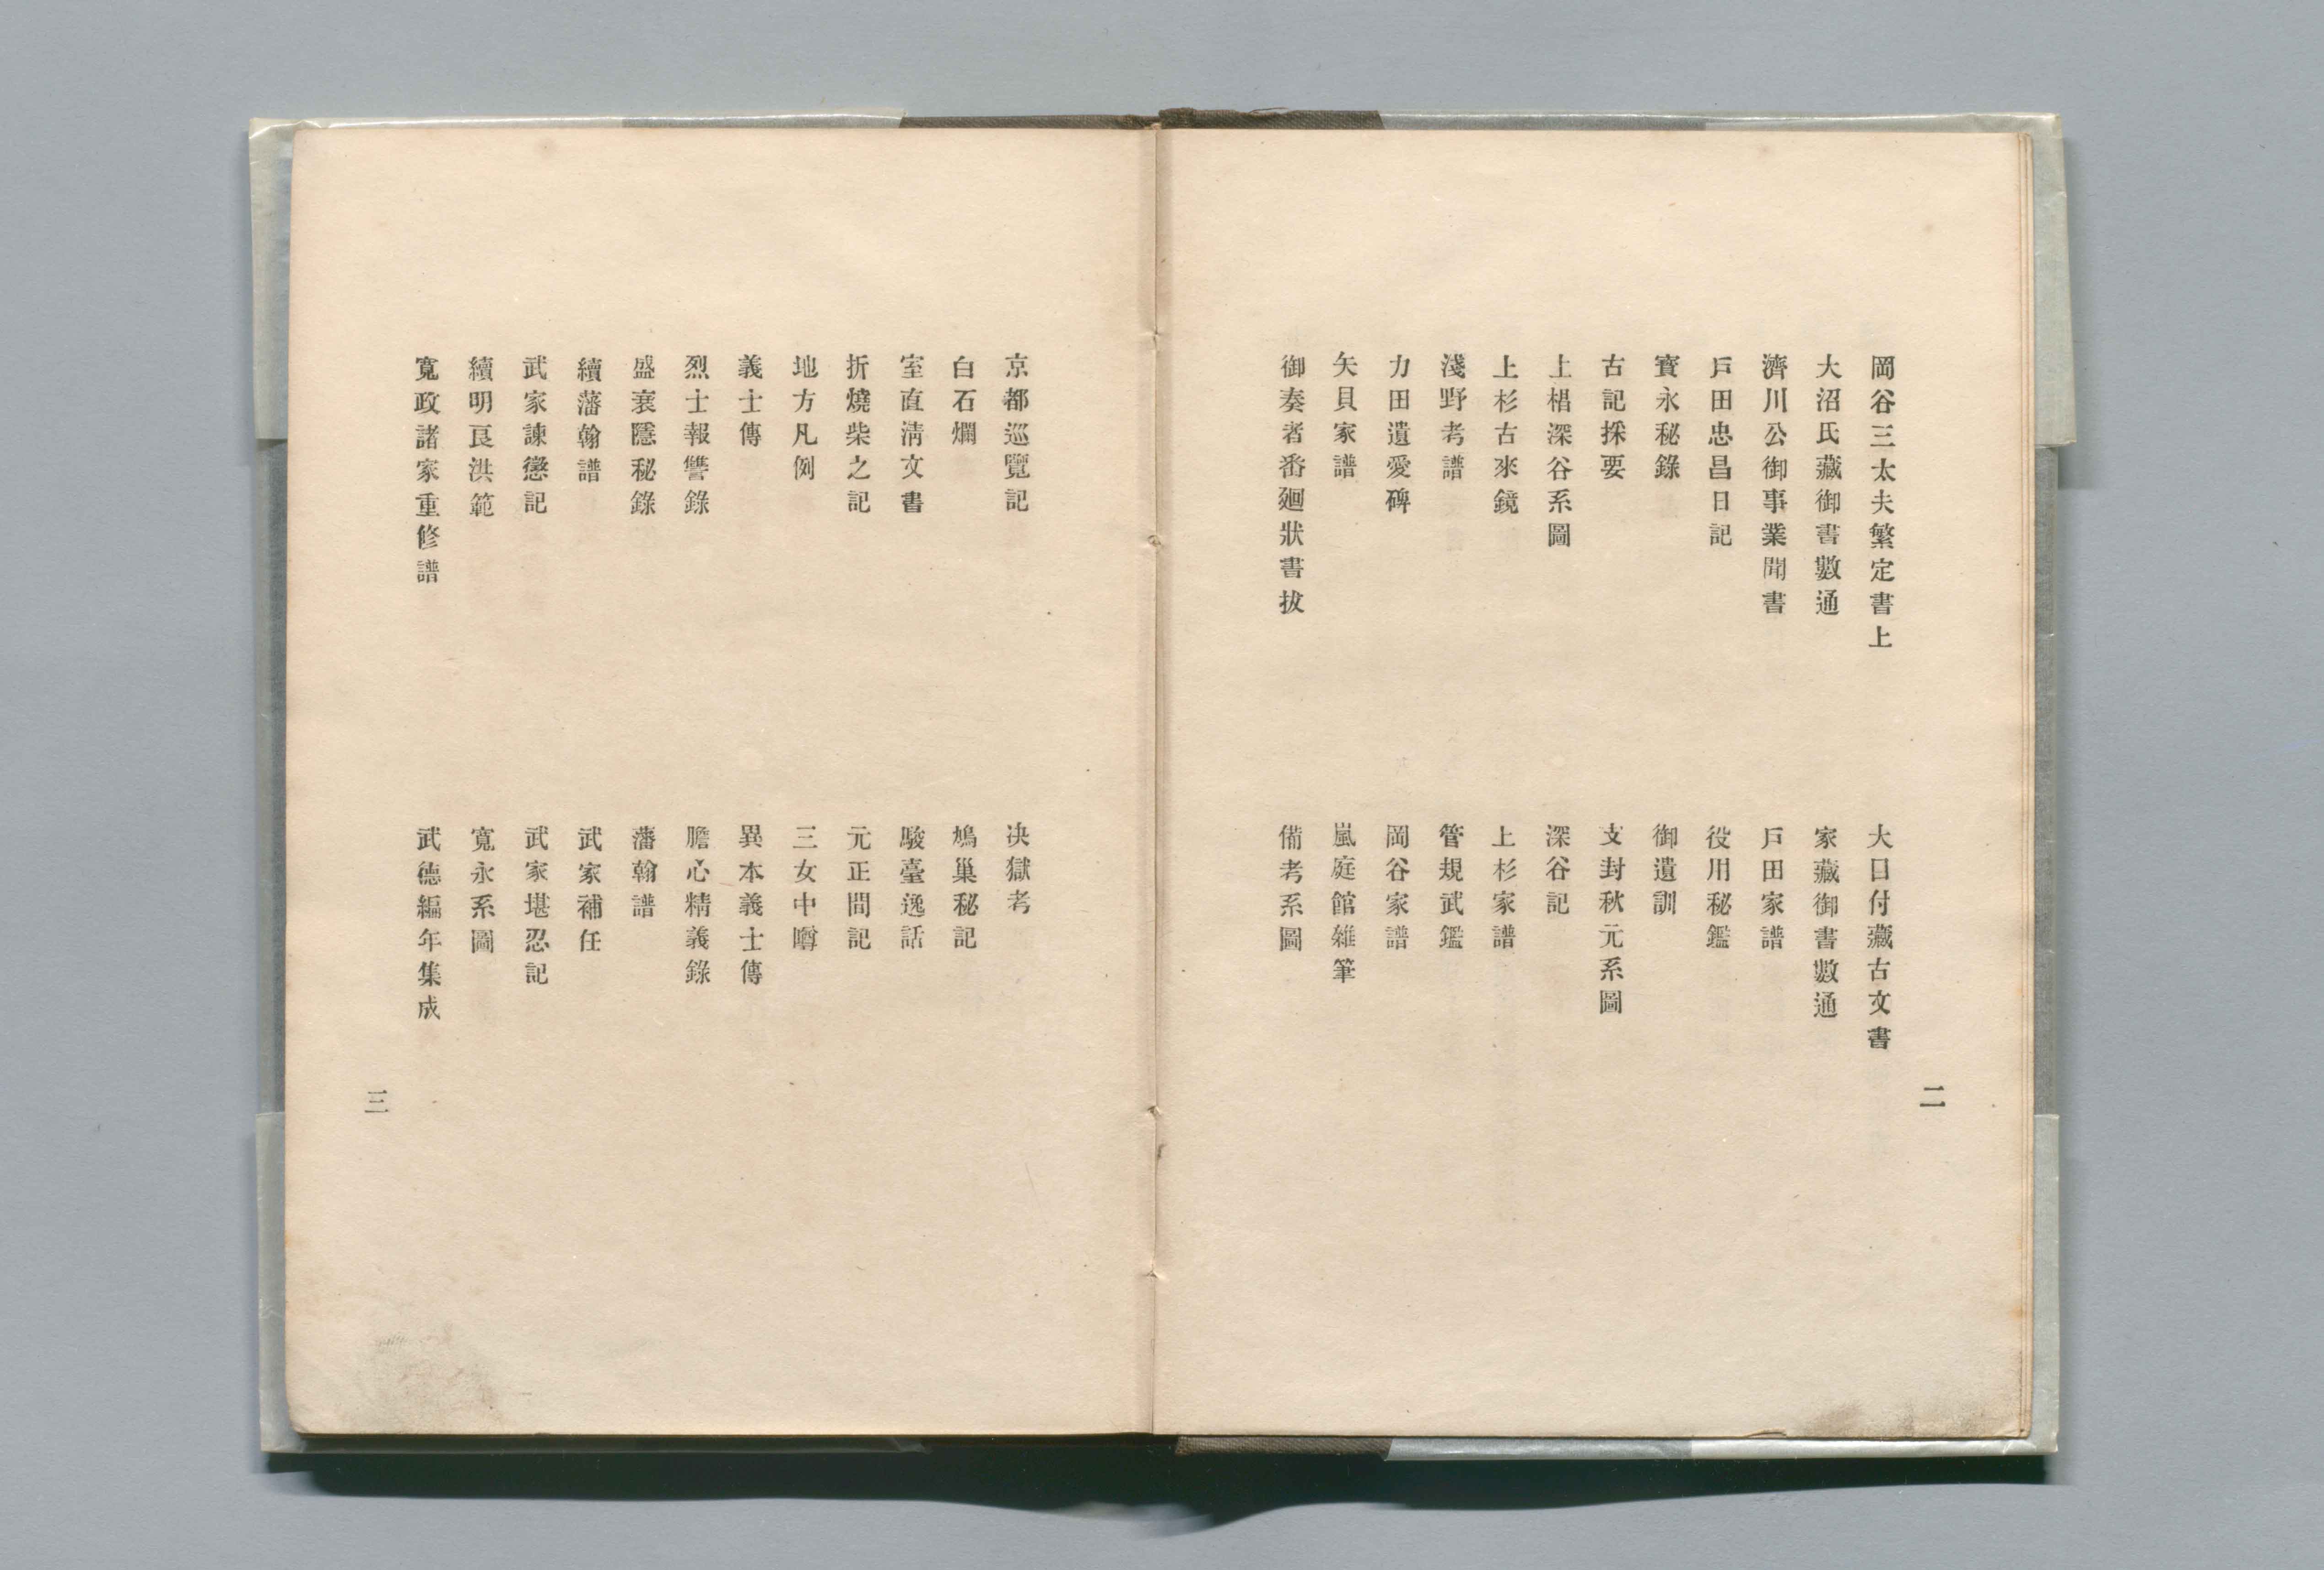 岡谷三太夫繁定書上
大沼氏藏御書數通
濟川公御事業聞書
戶田忠昌日記
寳永秘錄
古記採要
上椙深谷系圖
上杉古來鏡
淺野考譜
力田遺愛碑
矢貝家譜
御奏者番廻狀書拔
大目付藏古文書
家藏御書數通
戶田家譜
役用秘鑑
御遺訓
支封秋元系圖
深谷記
上杉家譜
管規武鑑
岡谷家譜
嵐庭館雜筆
備考系圖
二
京都巡覽記
白石爛
室直淸文書
折燒柴之記
地方凡例
義士傳
烈士報讐錄
盛衰隱秘錄
續藩翰譜
武家諫懲記
續明良洪範
寬政諸家重修譜
决獄考
鳩巢秘記
駿臺逸話
元正間記
三女中噂
異本義士傳
膽心精義錄
藩翰譜
武家補任
武家堪忍記
寬永系圖
武德編年集成
三